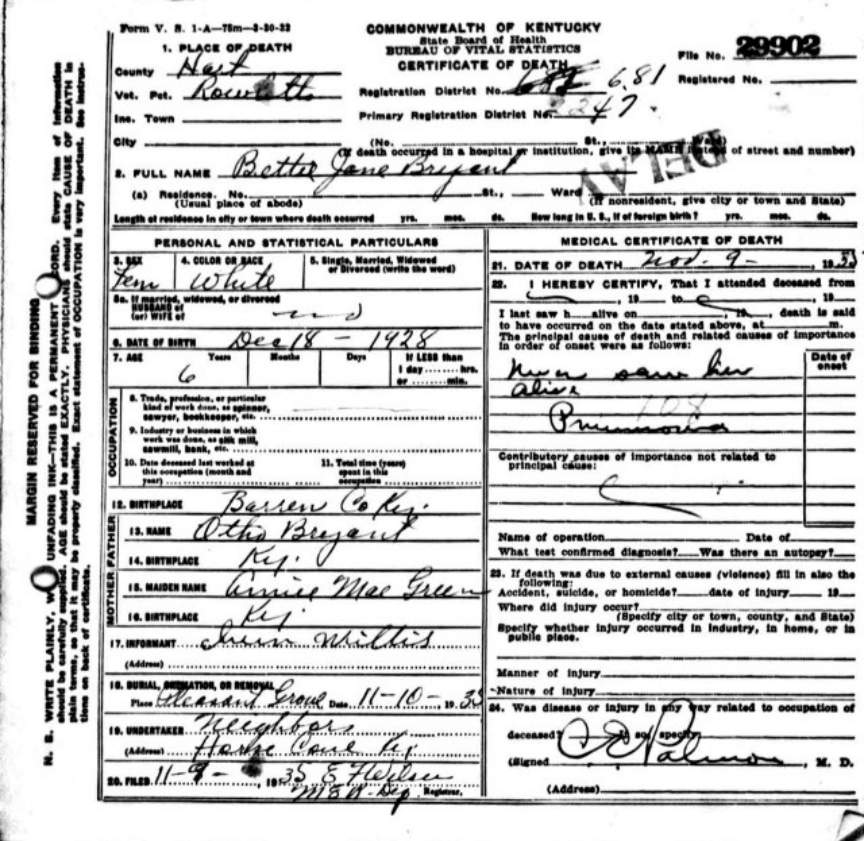 Form V. S. 1-A—75m—3-30-32
COMMONWEALTH OF KENTUCKY
State Board of Health
BUREAU OF VITAL STATISTICS
CERTIFICATE OF DEATH
File No. 29902
Registered No.
1. PLACE OF DEATH
County Hart
Vot. Pct. Rowletts
Inc. Town
City
Registration District No. 681
Primary Registration District No. 2247
(No. St., Ward)
(If death occurred in a hospital or institution, give its NAME instead of street and number)
DELAY
2. FULL NAME Bettie Jane Bryant
(a) Residence. No. St., Ward
(Usual place of abode) (If nonresident, give city or town and State)
Length of residence in city or town where death occurred yrs. mos. ds. How long in U. S., if of foreign birth? yrs. mos. ds.
PERSONAL AND STATISTICAL PARTICULARS
3. SEX Fem
4. COLOR OR RACE White
5. Single, Married, Widowed
or Divorced (write the word)
5a. If married, widowed, or divorced
HUSBAND of
(or) WIFE of
6. DATE OF BIRTH Dec 18 - 1928
7. AGE Years Months Days If LESS than
6 1 day hrs.
or min.
OCCUPATION
8. Trade, profession, or particular
kind of work done, as spinner,
sawyer, bookkeeper, etc.
9. Industry or business in which
work was done, as silk mill,
sawmill, bank, etc.
10. Date deceased last worked at
this occupation (month and
year)
11. Total time (years)
spent in this
occupation
12. BIRTHPLACE Barren Co Ky.
FATHER
13. NAME Otho Bryant
14. BIRTHPLACE Ky.
MOTHER
15. MAIDEN NAME Annie Mae Green
16. BIRTHPLACE Ky
17. INFORMANT Willis
(Address)
18. BURIAL, CREMATION, OR REMOVAL
Place Pleasant Grove Date 11-10-, 1935
19. UNDERTAKER Neighbors
(Address) Horse Cave Ky.
20. FILED 11-9-, 1935 E Wilson
Registrar.
MEDICAL CERTIFICATE OF DEATH
21. DATE OF DEATH Nov. 9 - 1935
22. I HEREBY CERTIFY, That I attended deceased from
, 19 to , 19
I last saw h alive on , 19 , death is said
to have occurred on the date stated above, at m.
The principal cause of death and related causes of importance
in order of onset were as follows:
Date of
onset
Never saw her
alive
108
Pneumonia
Contributory causes of importance not related to
principal cause:
Name of operation Date of
What test confirmed diagnosis? Was there an autopsy?
23. If death was due to external causes (violence) fill in also the
following:
Accident, suicide, or homicide? date of injury 19
Where did injury occur?
(Specify city or town, county, and State)
Specify whether injury occurred in industry, in home, or in
public place.
Manner of injury
Nature of injury
24. Was disease or injury in any way related to occupation of
deceased? If so, specify
(Signed Palmore, M. D.
(Address)
MARGIN RESERVED FOR BINDING
N. B. WRITE PLAINLY, UNFADING INK—THIS IS A PERMANENT RECORD. Every item of information
should be carefully supplied. AGE should be stated EXACTLY. PHYSICIANS should state CAUSE OF DEATH in
plain terms, so that it may be properly classified. Exact statement of OCCUPATION is very important. See instruc-
tions on back of certificate.